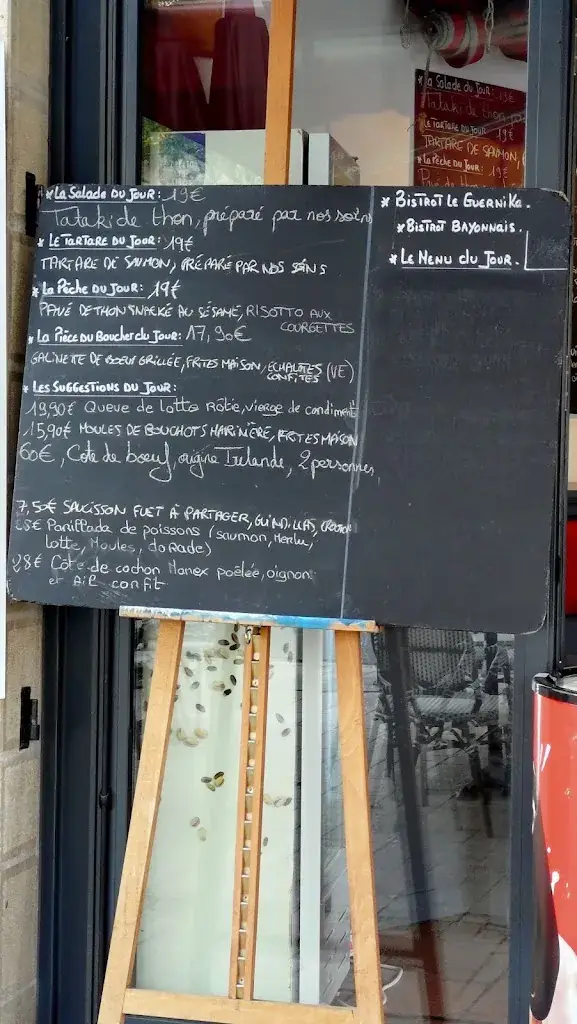 * La Salade du Jour: 19€
Tataki de thon, préparé par nos soins
* Le Tartare du Jour: 19€
TARTARE DE SAUMON, PRÉPARÉ PAR NOS SOINS
* La Pêche du Jour: 19€
PAVÉ DE THON SNACKÉ AU SÉSAME, RISOTTO AUX
COURGETTES
* La Pièce du Boucher du Jour: 17,90€
GALINETTE DE BOEUF GRILLÉE, FRITES MAISON, ÉCHALOTES
CONFITES (VE)
* Les Suggestions du Jour:
19,90€ Queue de lotte Rôtie, vierge de condiment
15,90€ MOULES DE BOUCHOTS MARINIÈRE, FRITES MAISON
60€, Côte de boeuf, origine Irelande, 2 personnes,
7,50€ SAUCISSON FUET À PARTAGER, GUINDILLAS,
Parillada de poissons (saumon, Merlu,
lotte, Moules, dorade)
28€ Côte de cochon Manex poêlée, oignon
et Ail confit
* Bistrot le Guernika.
* Bistrot Bayonnais.
* Le Menu du Jour.
La Salade du Jour: 19€
Tataki de thon
Le Tartare du Jour 19€
TARTARE DE SAUMON,
La Pêche du Jour: 19€